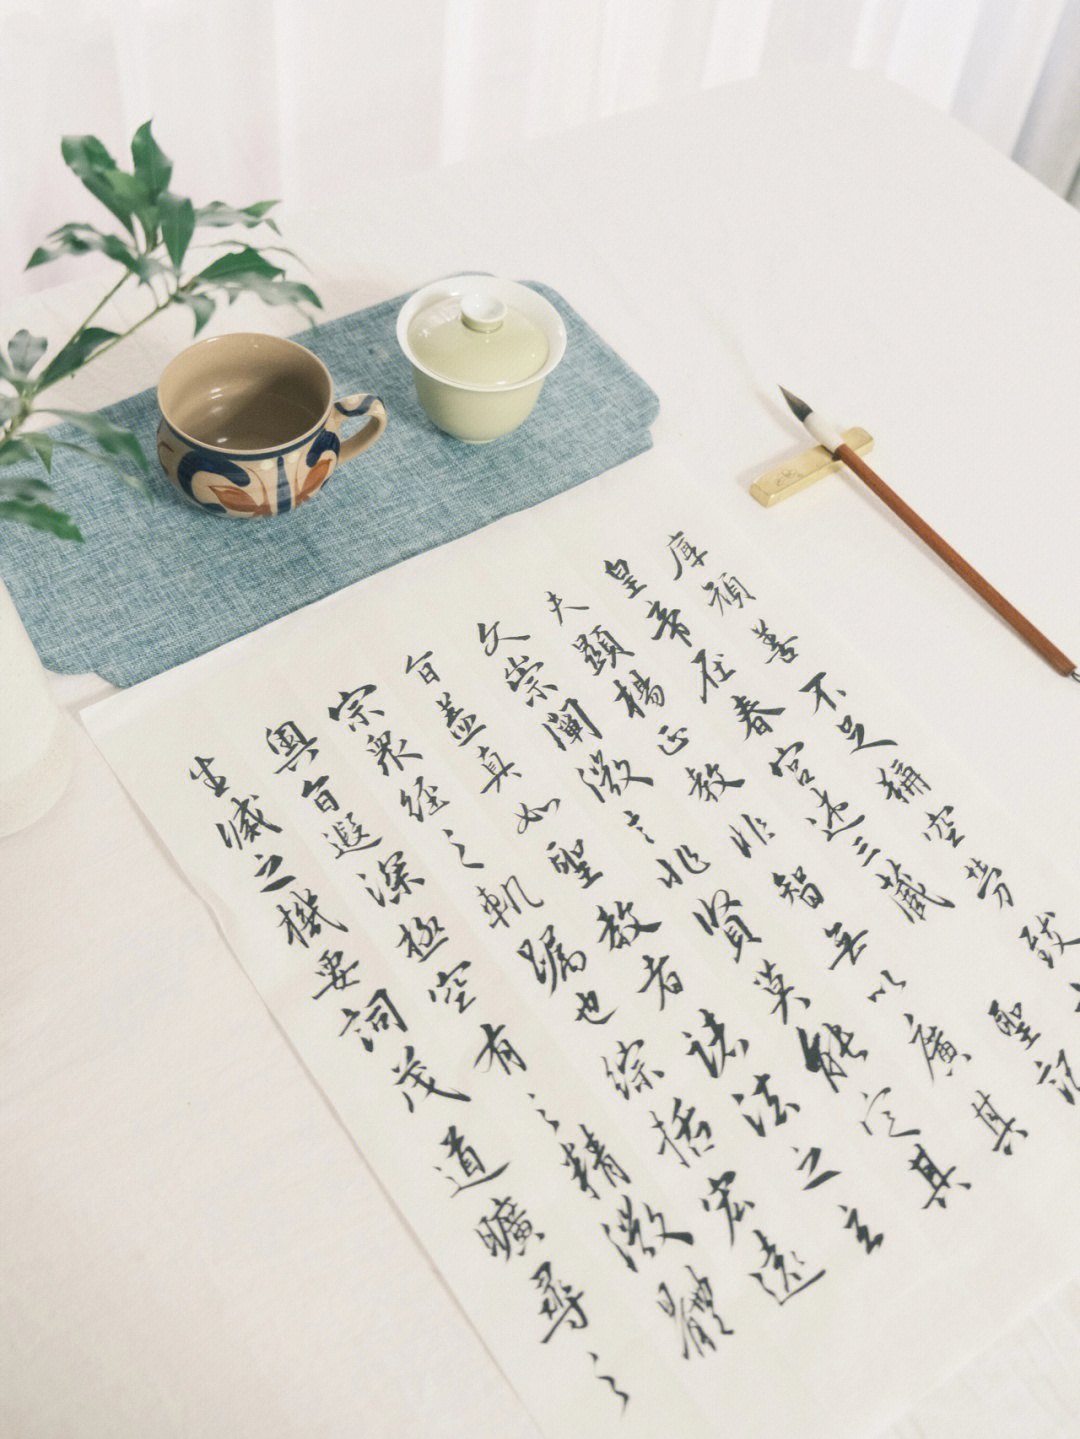 厚顏善不足稱空勞致
皇帝在春宮述三藏 聖記
夫顯揚正教非智無以廣其
文崇闡微言非賢莫能定其
旨蓋真如聖教者諸法之玄
宗衆經之軌躅也綜括宏遠
奧旨遐深極空有之精微體
生滅之機要詞茂道曠尋之